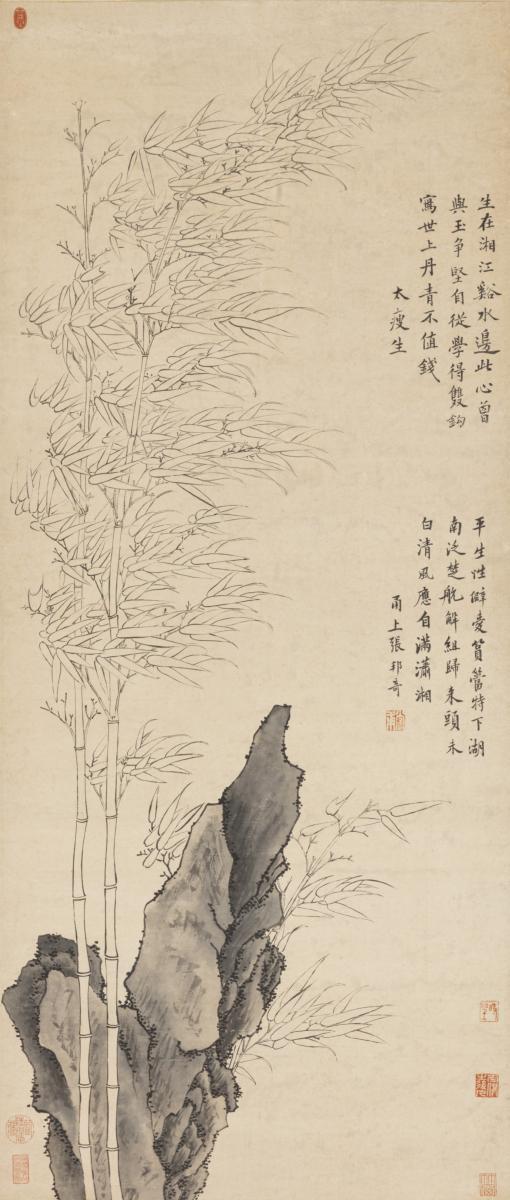 生在湘江谿水邊此心曾
與玉争堅自從學得雙鈎
寫世上丹青不值錢
太瘦生
平生性僻愛篔簹特下湖
南泛楚航解組歸來頭未
白清風應自滿瀟湘
甬上張邦奇